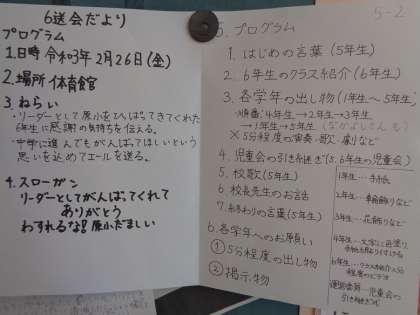 6送会だより
プログラム
1.日時 令和3年2月26日(金)
2.場所 体育館
3.ねらい
・リーダーとして原小をひっぱってきてくれた
6年生に感謝の気持ちを伝える。
・中学に進んでもがんばってほしいという
思いを込めてエールを送る。
4.スローガン
リーダーとしてがんばってくれて
ありがとう
わすれるな!原小だましい
5-2
5.プログラム
1.はじめの言葉(5年生)
2.6年生のクラス紹介(6年生)
3.各学年の出し物(1年生〜5年生)
順番:4年生→2年生→3年生
→1年生→5年生
※5分程度の演奏・歌・劇など
4.児童会の引き継ぎ(5.6年生の児童会)
5.校歌(5年生)
6.校長先生のお話
7.終わりの言葉(5年生)
6.各学年へのお願い
①5分程度の出し物
②掲示物
1年生…手紙
2年生…
3年生…花飾りなど
4年生…文字に色塗り、
6年生…クラス紹介2分
程度のビデオ
運営委員…児童会の
引き継ぎ式